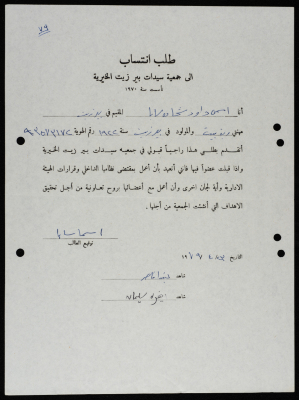 ٧٩
طلب انتساب
الى جمعية سيدات بير زيت الخيرية
تأسست سنة ١٩٧٠
أنا اسمى داود شحاده سابا المقيم في بيرزيت
مهنتي ربة بيت والمولود في بيرزيت سنة ١٩٢٢ رقم الهوية
أتقدم بطلبي هذا راجياً قبولي في جمعية سيدات بير زيت الخيرية
واذا قبلت عضواً فيها فاني أتعهد بأن أعمل بمقتضى نظامها الداخلي وقرارات الهيئة
الادارية وأية لجان اخرى وان أعمل مع أعضائها بروح تعاونية من أجل تحقيق
الاهداف التي أنشئت الجمعية من أجلها .
توقيع الطالب
التاريخ
شاهد
شاهد